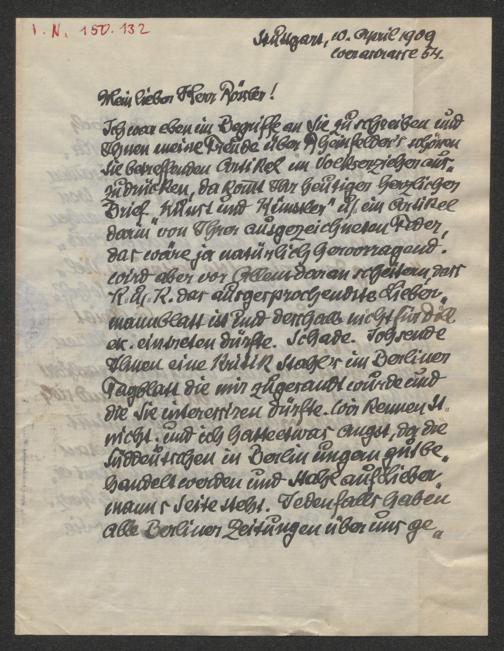 I.N. 150.132
Stuttgart, 10. April 1909
Werastrasse 54.
Mein lieber Herr Rössler!
Ich war eben im Begriffe an Sie zu schreiben und
Ihnen meine Freude über Rheinfelder's schönen
Sie betreffenden Artikel im Volkserzieher aus-
zudrücken, da komt Ihr heutiger herzlicher
Brief. "Kunst und Künstler" u. ein Artikel
darin von Ihrer ausgezeichneten Feder,
das wäre ja natürlich hervorragend.
wird aber vor Allem daran scheitern, dass
K. u. K. das ausgesprochendste Lieber-
mannblatt ist und deshalb nicht für
etc. eintreten dürfte. Schade. Ich sende
Ihnen eine Kritik Stahl's im Berliner
Tagblatt die mir zugesandt wurde und
die Sie interessiren dürfte. Wir kennen St.
nicht. und ich hatte etwas Angst, da die
Süddeutschen in Berlin ungern gut be-
handelt werden und Stahl auf Lieber-
mann's Seite steht. Jedenfalls haben
alle Berliner Zeitungen über uns ge-